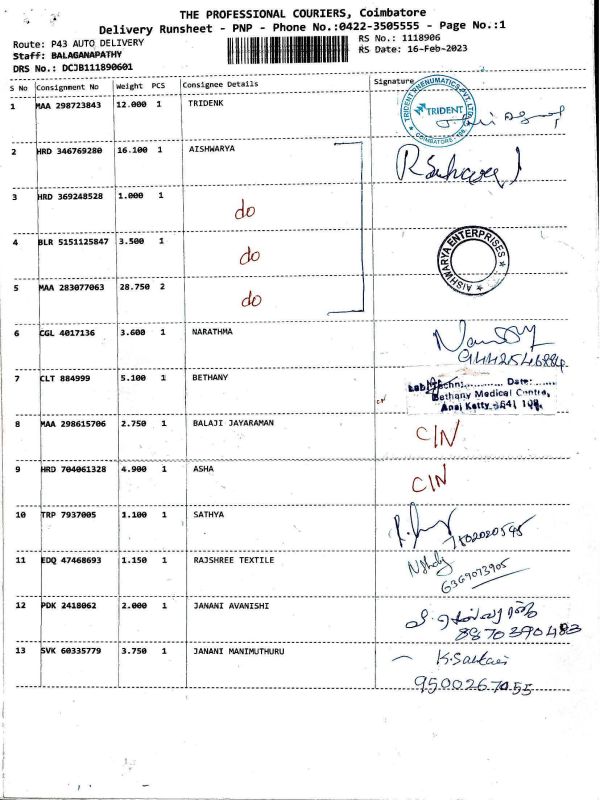 THE PROFESSIONAL COURIERS, Coimbatore
Delivery Runsheet - PNP - Phone No.:0422-3505555 - Page No.:1
Route: P43 AUTO DELIVERY
RS No.: 1118906
Staff: BALAGANAPATHY
RS Date: 16-Feb-2023
DRS No.: DCJB111890601
S No Consignment No Weight PCS Consignee Details Signature
1 MAA 298723843 12.000 1 TRIDENK
TRIDENT PNEUMATICS PVT. LTD.
TRIDENT
COIMBATORE
2 HRD 346769280 16.100 1 AISHWARYA
3 HRD 369248528 1.000 1 do
4 BLR 5151125847 3.500 1 do
AISHWARYA ENTERPRISES
5 MAA 283077063 28.750 2 do
6 CGL 4017136 3.600 1 NARATHMA
7 CLT 884999 5.100 1 BETHANY
Lab Techn:............ Date:......
Bethany Medical Centre,
Anai Katty - 641 108.
8 MAA 298615706 2.750 1 BALAJI JAYARAMAN C/N
9 HRD 704061328 4.900 1 ASHA C/N
10 TRP 7937005 1.100 1 SATHYA
11 EDQ 47468693 1.150 1 RAJSHREE TEXTILE
6369073905
12 PDK 2418062 2.000 1 JANANI AVANISHI
8870390483
13 SVK 60335779 3.750 1 JANANI MANIMUTHURU
9500267055